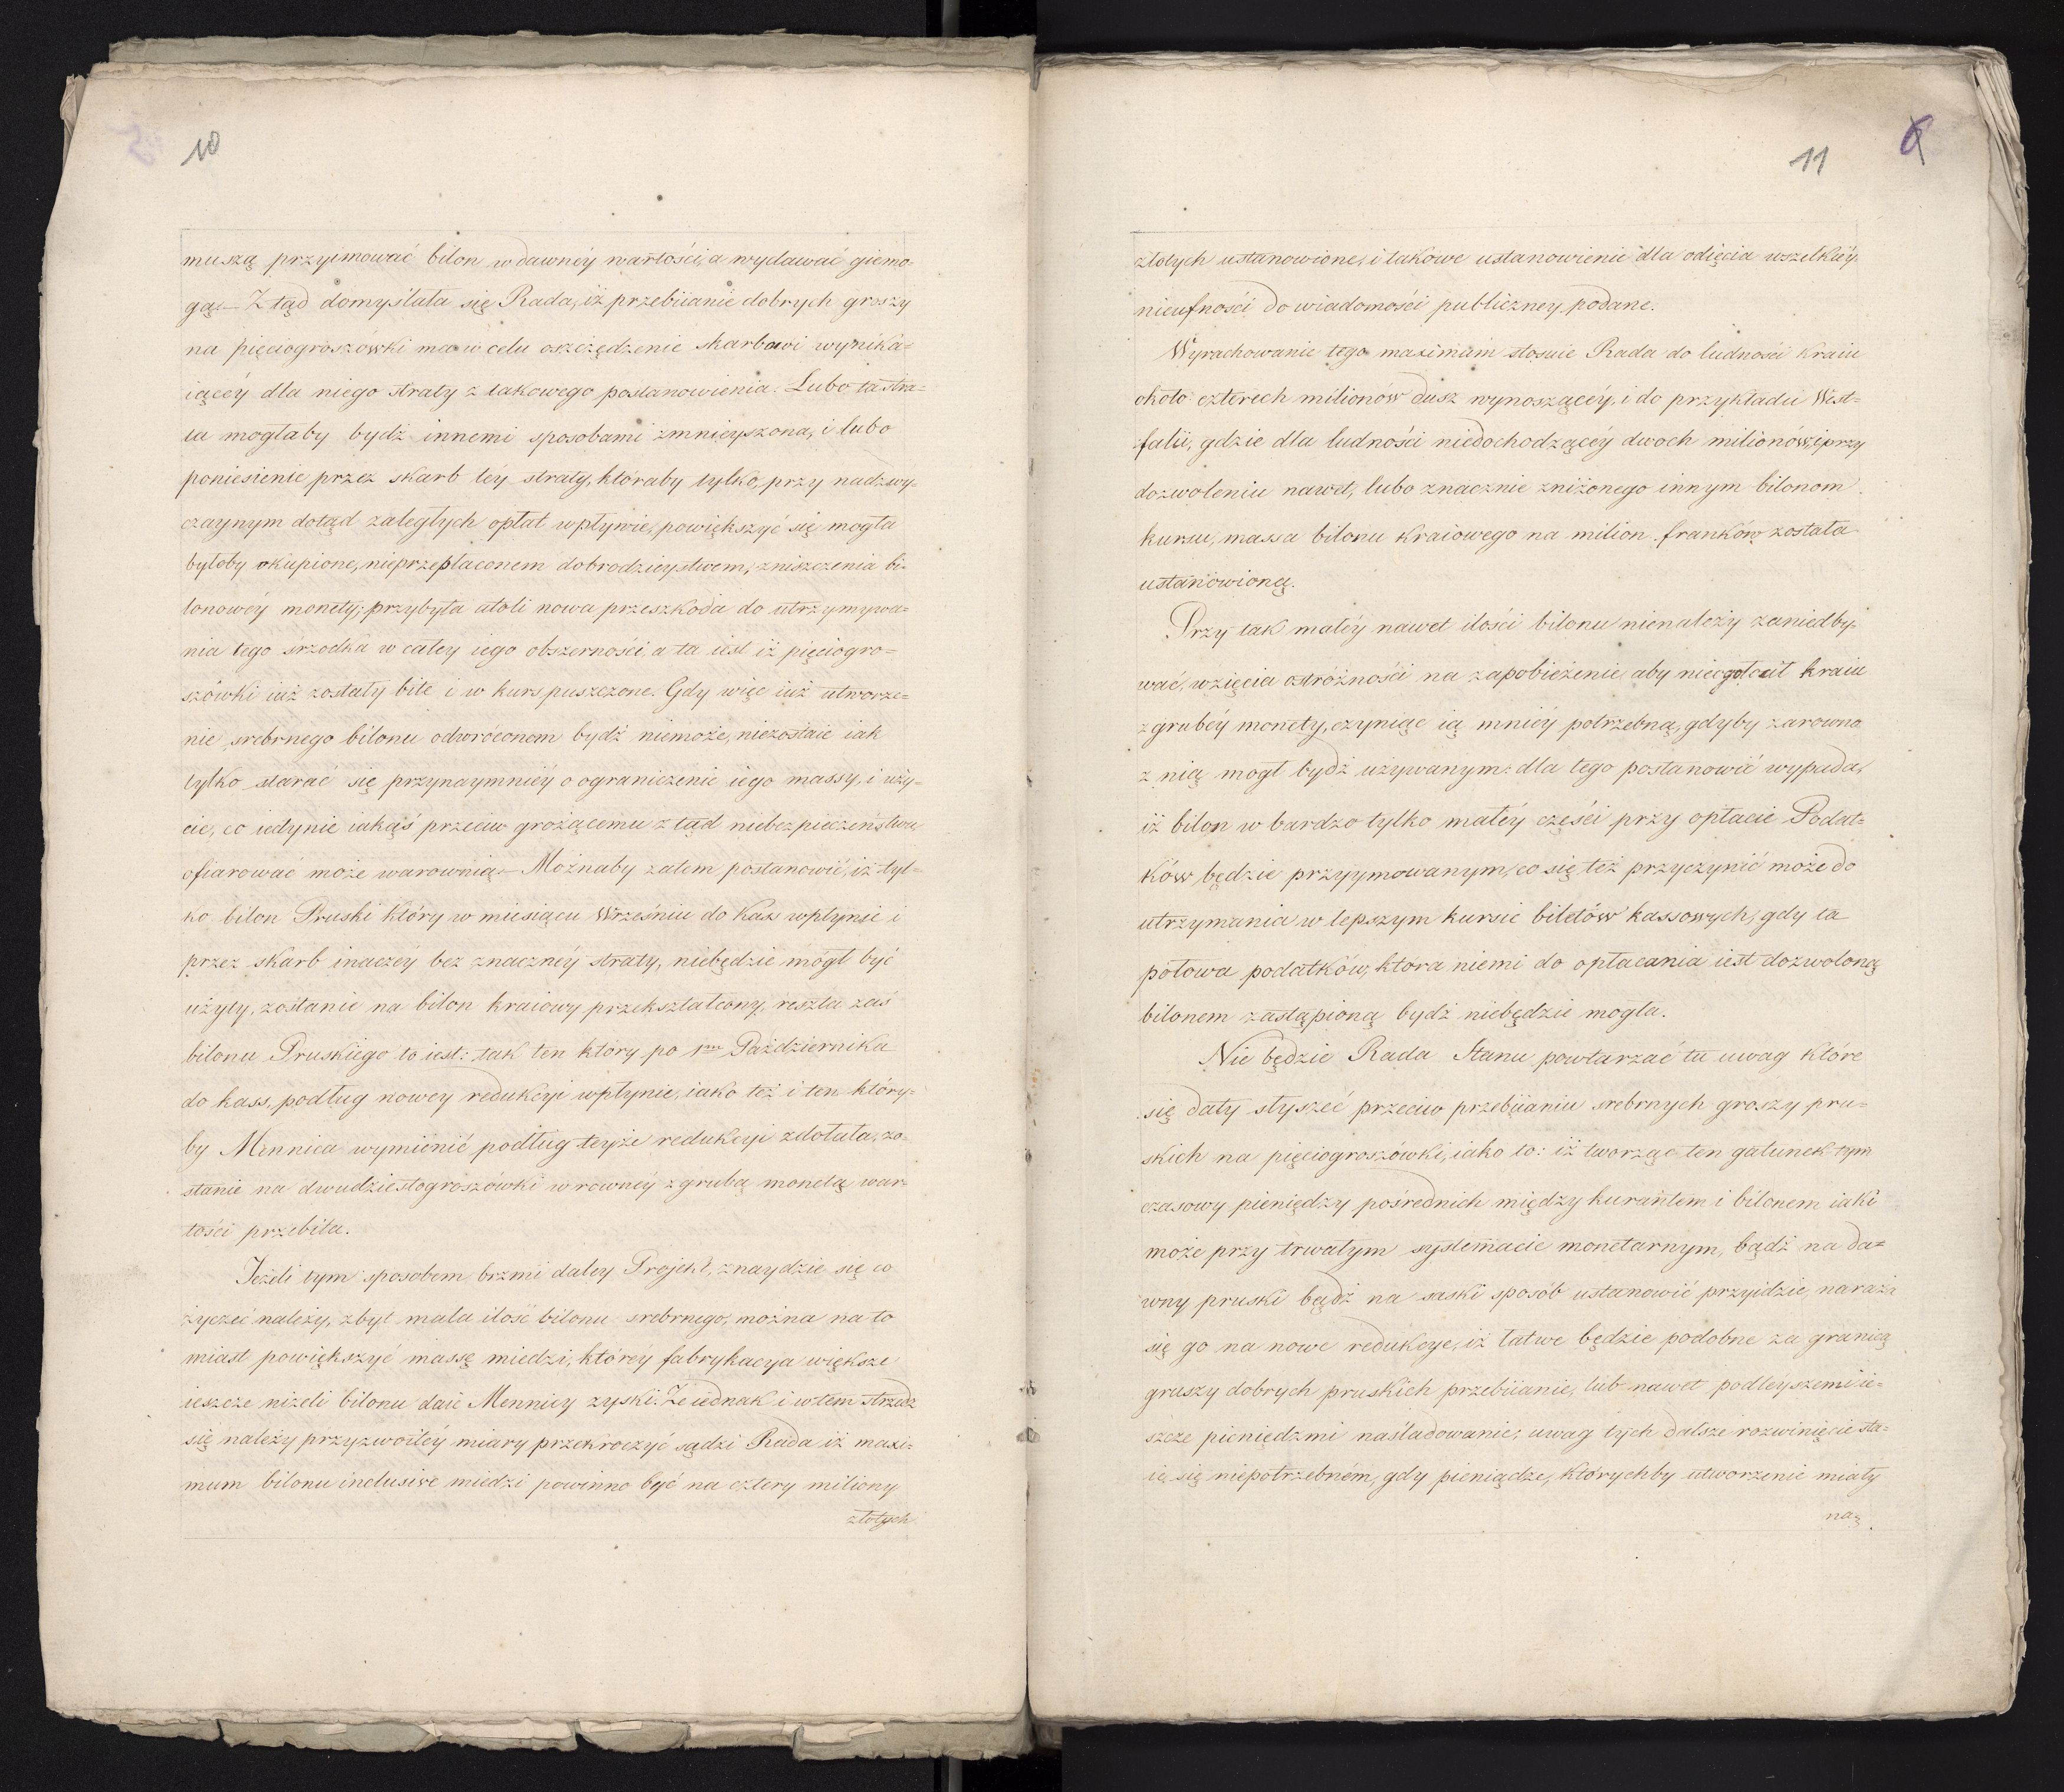 10
muszą przyimować bilon w dawnéy wartości, a wydawać giemo-
gą.— Z tąd domyślała się Rada, iż przebiianie dobrych groszy
na pięciogroszówki ma w celu oszczędzenie skarbowi wynika=
iącéy dla niego straty z takowego postanowienia. Lubo ta stra=
ta mogłaby bydź innemi sposobami zmnieyszona, i lubo
poniesienie przez skarb téy straty, któraby tylko, przy nadzwy-
czaynym dotąd zaległych opłat wpływie, powiększyć się mogła
byłoby okupione, nieprzepłaconem dobrodzieystwem, zniszczenia bi-
lonowéy monety; przybyła atoli nowa przeszkoda do utrzymywa=
nia tego srzodka w całey iego obszerności, a ta iest iż pięciogro=
szówki iuż zostały bite i w kurs puszczone. Gdy więc iuż utworze=
nie srebrnego bilonu odwróconem bydź niemoże, niezostaie iak
tylko starać się przynaymniéy o ograniczenie iego massy, i uży-
cie, co iedynie iakąś przeciw grożącemu z tąd niebezpieczeństwu
ofiarować może warownią.— Możnaby zatem postanowić, iż tyl=
ko bilon Pruski który w miesiącu Wrześniu do Kass wpłynie i
przez skarb inaczéy bez znacznéy straty, niebędzie mógł być
użyty, zostanie na bilon kraiowy przekształcony, reszta zaś
bilonu Pruskiego to iest: tak ten który po 1ym Października
do kass, podług nowey redukcyi wpłynie, iako też i ten któryby=
by Mennica wymienić podług teyże redukcyi zdołała, zo=
stanie na dwudziestogroszówki w równéy z grubą monetą war-
tości przebita.
Jeżeli tym sposobem brzmi daley Projekt, znaydzie się co
życzeć należy, zbyt mała ilość bilonu srebrnego, można na to
miast powiększyć massę miedzi, któréy fabrykacya większe
ieszcze niżeli bilonu daie Mennicy zyski. Że iednak i w tem strzedz
się należy przyzwoitéy miary przekroczyć sądzi Rada iż maxi=
mum bilonu inclusive miedzi powinno być na cztery miliony
złotych
11
6
złotych ustanowione, i takowe ustanowienie dla odięcia wszelkiéy
nieufności do wiadomości publiczney podane.
Wyrachowanie tego maximum stosuie Rada do ludności kraiu
około czterech milionów dusz wynoszącéy, i do przykładu West=
falii, gdzie dla ludności niedochodzącéy dwoch milionów, i przy
dozwoleniu nawet, lubo znacznie zniżonego innym bilonom
kursu, massa bilonu kraiowego na milion franków została
ustanowioną.
Przy tak małéy nawet ilości bilonu nienależy zaniedby-
wać, wzięcia ostróżności na zapobieżenie, aby nieogołcał kraiu
z grubéy monety, czyniąc ią mniéy potrzebną, gdyby zarowno
z nią mogł bydź używanym: dla tego postanowić wypada,
iż bilon w bardzo tylko małéy części przy opłacie Podat=
ków będzie przyymowanym, co się też przyczynić może do
utrzymania w lepszym kursie biletów kassowych, gdy ta
połowa podatków, ktora niemi do opłacania iest dozwoloną
bilonem zastąpioną bydź niebędzie mogła.
Nie będzie Rada Stanu powtarzać tu uwag które
się dały słyszeć przeciw przebiianiu srebrnych groszy pru=
skich na pięciogroszówki, iako to: iż tworząc ten gatunek tym
czasowy pieniędzy pośrednich między kurantem i bilonem iaki
może przy trwałym systemacie monetarnym, bądź na da=
wny pruski bądź na saski sposób ustanowić przyidzie, naraża
się go na nowe redukcye, iż łatwe będzie podobne za granicą
gruszy dobrych pruskich przebiianie, lub nawet podleyszemi ie=
szcze pieniędzmi naśladowanie; uwag tych dalsze rozwinięcie sta=
ie się niepotrzebném, gdy pieniądze, którychby utworzenie miały
na